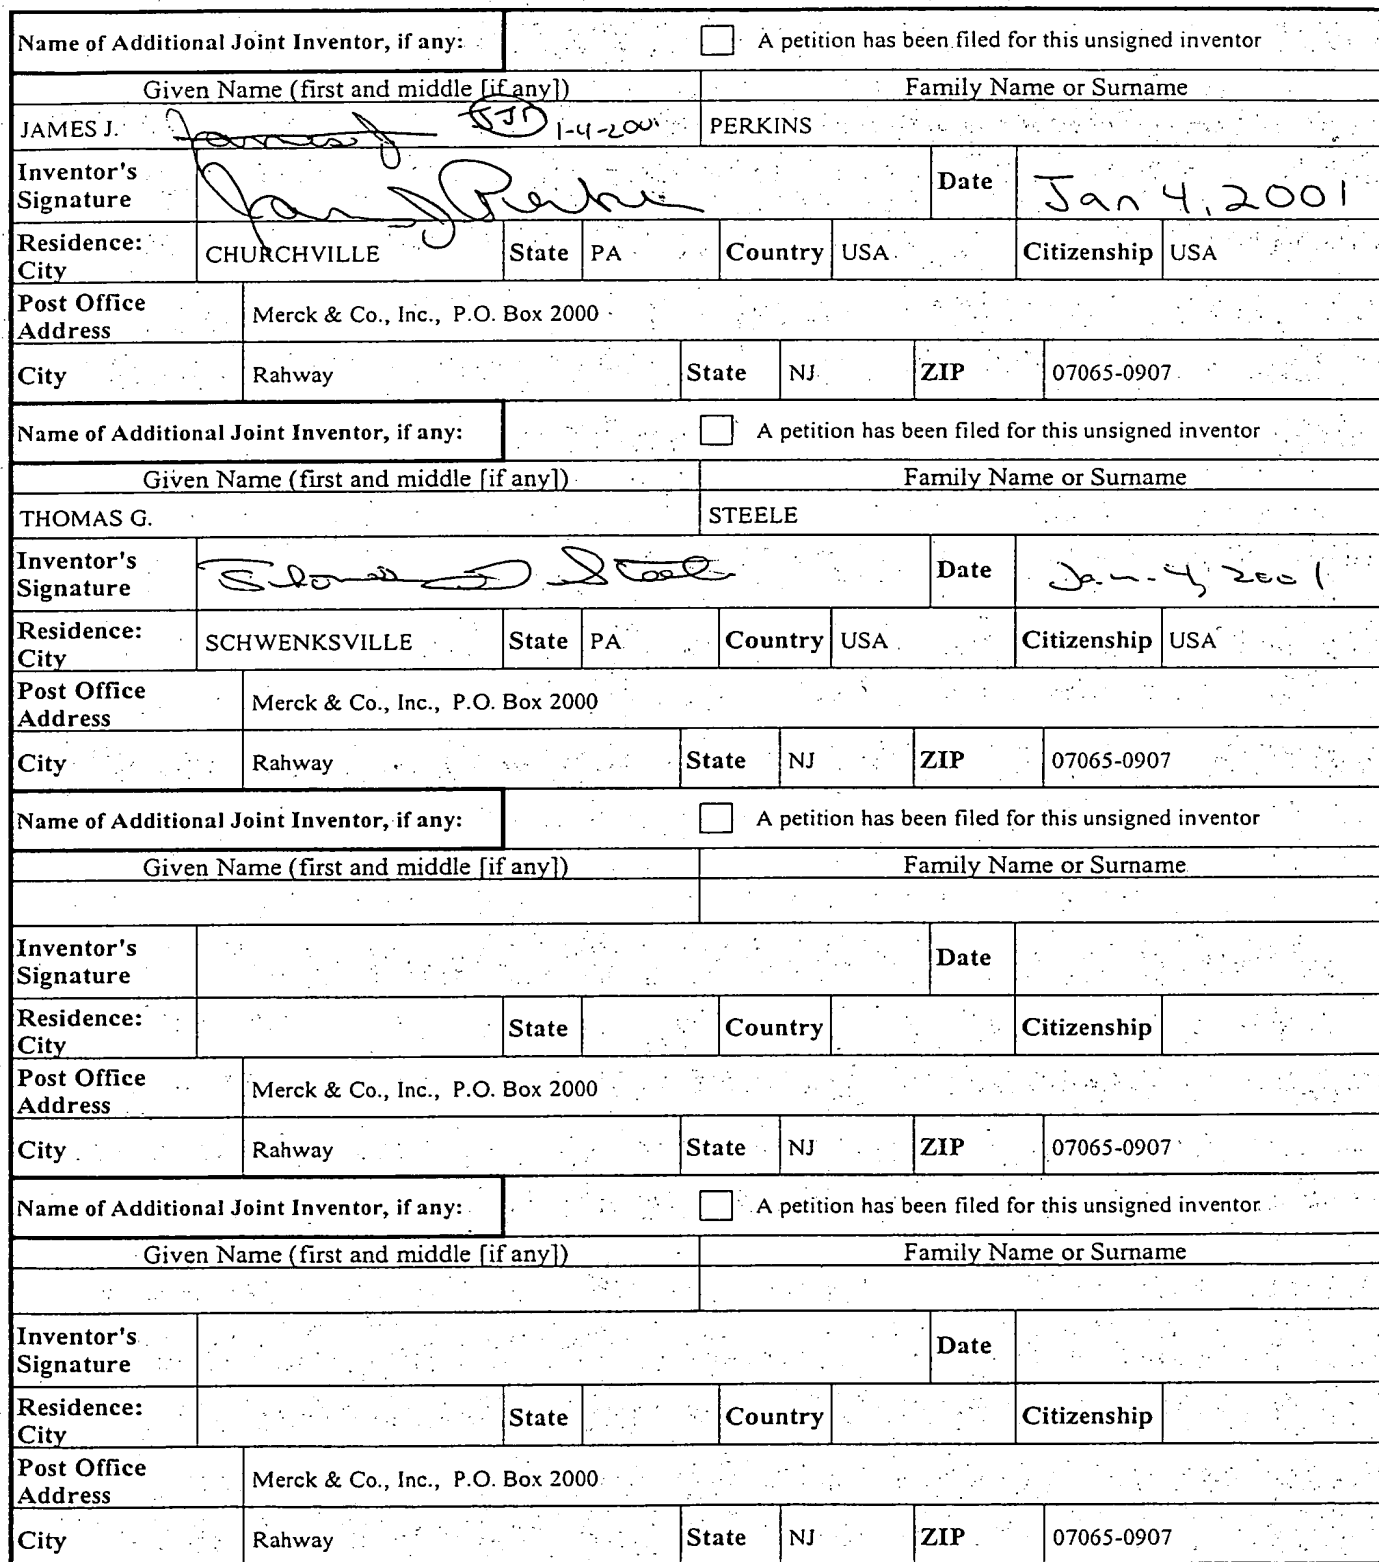 Name of Additional Joint Inventor, if any: A petition has been filed for this unsigned inventor
Given Name (first and middle [if any]) Family Name or Surname
JAMES J. James J 1-4-2001 PERKINS
Inventor's Signature James J Perkins Date Jan 4, 2001
Residence: City CHURCHVILLE State PA Country USA Citizenship USA
Post Office Address Merck & Co., Inc., P.O. Box 2000
City Rahway State NJ ZIP 07065-0907
Name of Additional Joint Inventor, if any: A petition has been filed for this unsigned inventor
Given Name (first and middle [if any]) Family Name or Surname
THOMAS G. STEELE
Inventor's Signature Thomas G. Steele Date Jan. 4, 2001
Residence: City SCHWENKSVILLE State PA Country USA Citizenship USA
Post Office Address Merck & Co., Inc., P.O. Box 2000
City Rahway State NJ ZIP 07065-0907
Name of Additional Joint Inventor, if any: A petition has been filed for this unsigned inventor
Given Name (first and middle [if any]) Family Name or Surname
Inventor's Signature Date
Residence: City State Country Citizenship
Post Office Address Merck & Co., Inc., P.O. Box 2000
City Rahway State NJ ZIP 07065-0907
Name of Additional Joint Inventor, if any: A petition has been filed for this unsigned inventor
Given Name (first and middle [if any]) Family Name or Surname
Inventor's Signature Date
Residence: City State Country Citizenship
Post Office Address Merck & Co., Inc., P.O. Box 2000
City Rahway State NJ ZIP 07065-0907